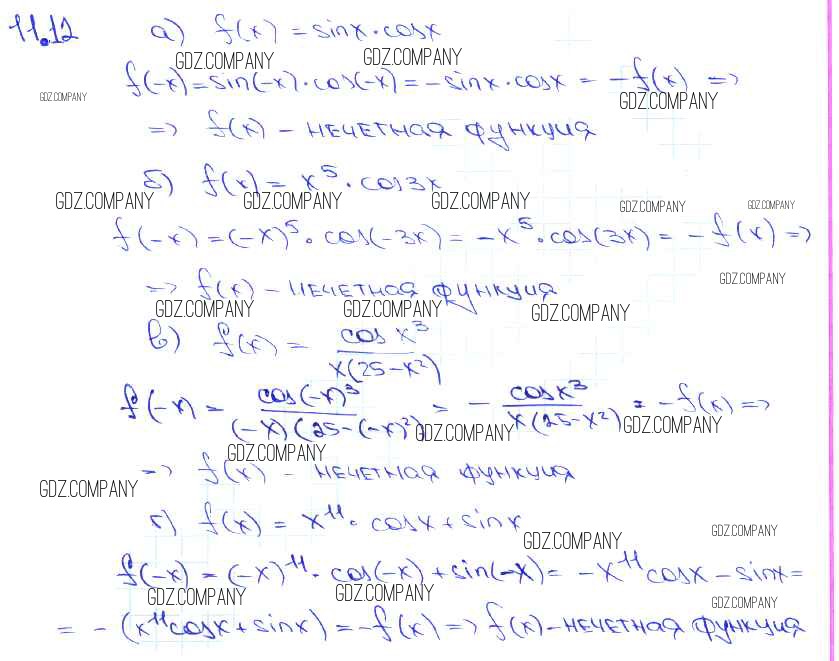 11.12 а) f(x) = sinx·cosx
GDZ.COMPANY GDZ.COMPANY
f(-x) = sin(-x)·cos(-x) = -sinx·cosx = -f(x) =>
GDZ.COMPANY GDZ.COMPANY
=> f(x) - нечетная функция
б) f(x) = x⁵·cos3x
GDZ.COMPANY GDZ.COMPANY GDZ.COMPANY GDZ.COMPANY GDZ.COMPANY
f(-x) = (-x)⁵·cos(-3x) = -x⁵·cos(3x) = -f(x) =>
GDZ.COMPANY
=> f(x) - нечетная функция
GDZ.COMPANY GDZ.COMPANY GDZ.COMPANY
в) f(x) = cos x³ / x(25-x²)
f(-x) = cos(-x)³ / (-x)(25-(-x)²) = - cosx³ / x(25-x²) = -f(x) =>
GDZ.COMPANY GDZ.COMPANY
GDZ.COMPANY
=> f(x) - нечетная функция
GDZ.COMPANY
г) f(x) = x¹¹·cosx+sinx
GDZ.COMPANY GDZ.COMPANY
f(-x) = (-x)¹¹·cos(-x)+sin(-x) = -x¹¹cosx-sinx=
GDZ.COMPANY GDZ.COMPANY GDZ.COMPANY
= -(x¹¹cosx+sinx) = -f(x) => f(x) - нечетная функция